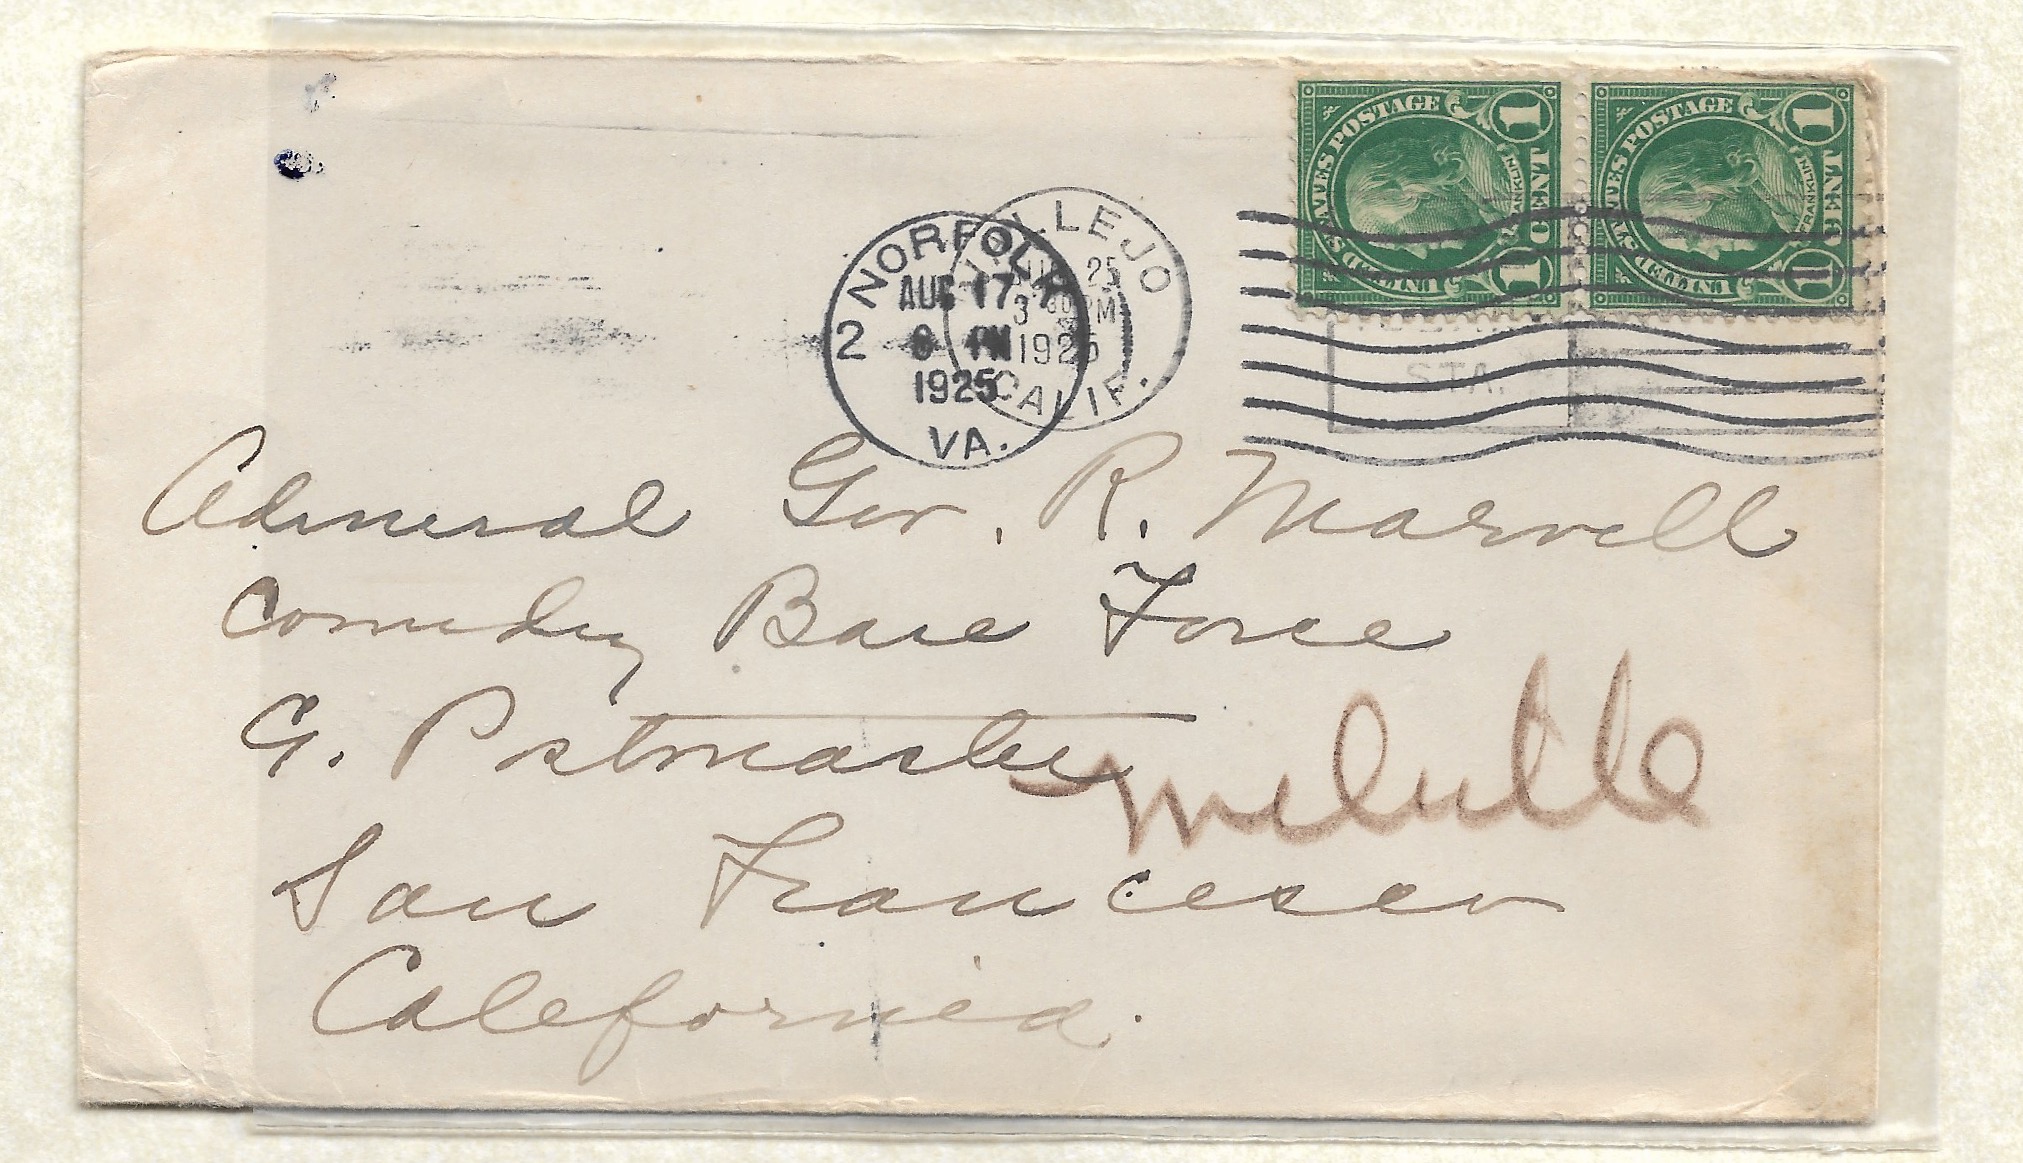 UNITED STATES POSTAGE
FRANKLIN
1 CENT 1
UNITED STATES POSTAGE
FRANKLIN
1 CENT 1
VALLEJO
25
3 30 PM
1925
CALIF.
NORFOLK
2
AUG 17
PM
1925
VA.
STA.
Admiral Geo. R. Marvell
Comdg Base Force
C/. Postmaster
Melville
San Francisco
California.